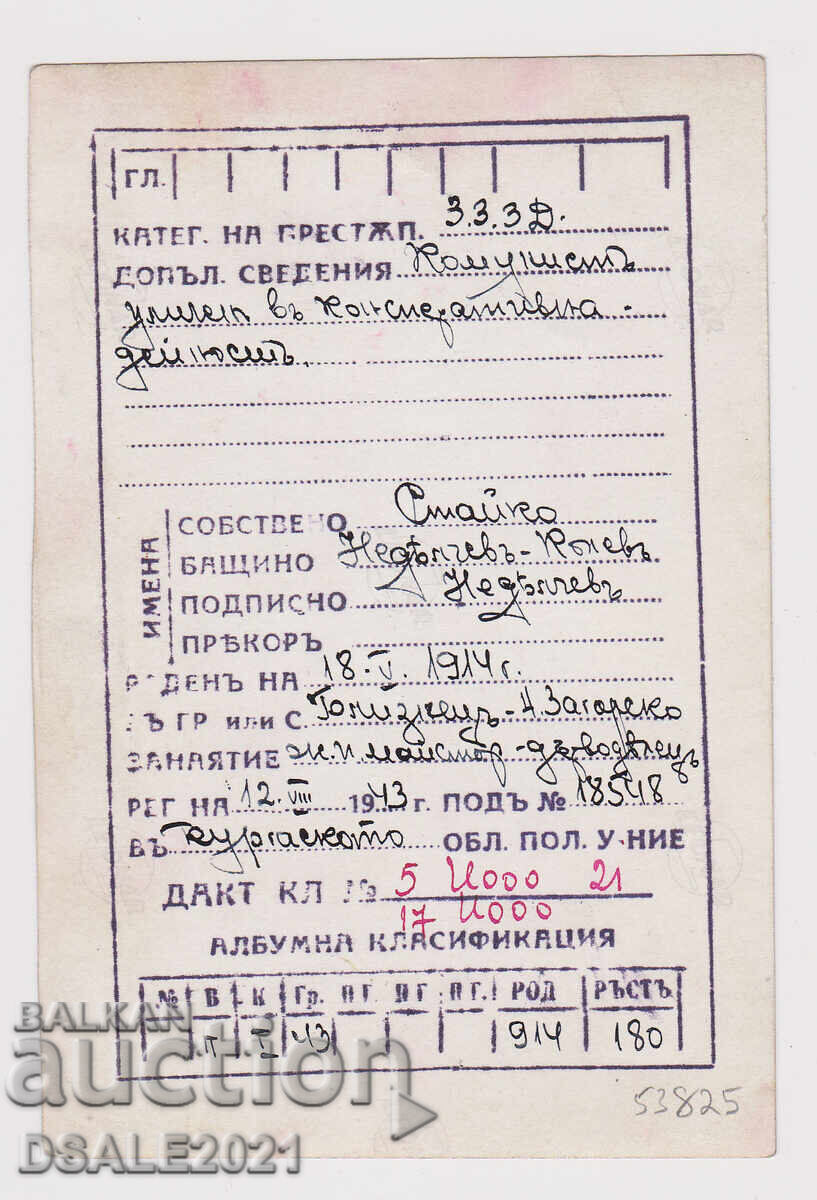 ГЛ.
КАТЕГ. НА ПРЕСТѪП. З.З.З Д.
ДОПЪЛ. СВЕДЕНИЯ Комунистъ
уличен въ конспиративна
дейностъ.
ИМЕНА
СОБСТВЕНО Стайко
БАЩИНО Недѣлчевъ - Колевъ
ПОДПИСНО Недѣлчевъ
ПРѢКОРЪ
РОДЕНЪ НА 18.V.1914 г.
ВЪ ГР или С. - Н. Загорско
ЗАНАЯТИЕ ж.п. майстор - дърводѣлецъ
РЕГ НА 12.VIII 1943 г. ПОДЪ № 18548
ВЪ Бургаското ОБЛ. ПОЛ. У-НИЕ
ДАКТ КЛ № 5 Uooo 21
17 Uooo
АЛБУМНА КЛАСИФИКАЦИЯ
№ В К Гр. П Г. П Г. П Г. РОД РЪСТЪ
п. I 43 914 180
53825
BALKAN
auction
DSALE2021